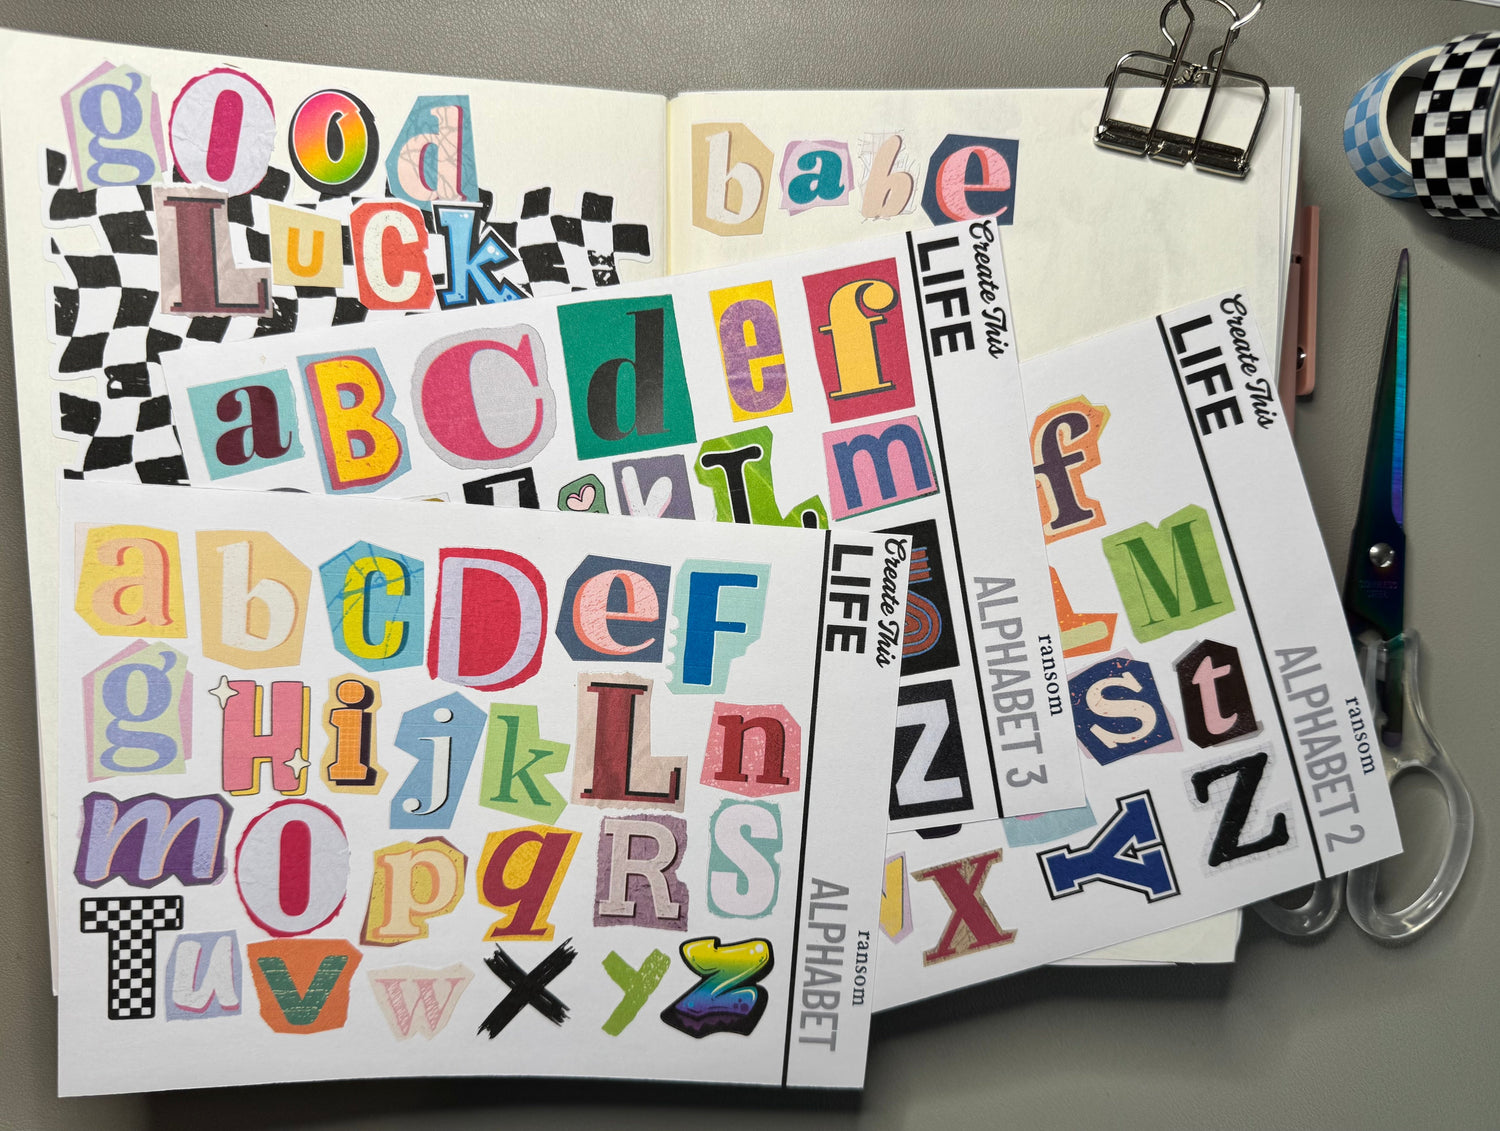 gOod
LuCk
babe
aBCdef
L m
Z
Create This
LIFE
ransom
ALPHABET 3
f
M
st
Z
X Y
Create This
LIFE
ransom
ALPHABET 2
abcDeF
gHijkLn
mOpqRS
TuvwxyZ
Create This
LIFE
ransom
ALPHABET